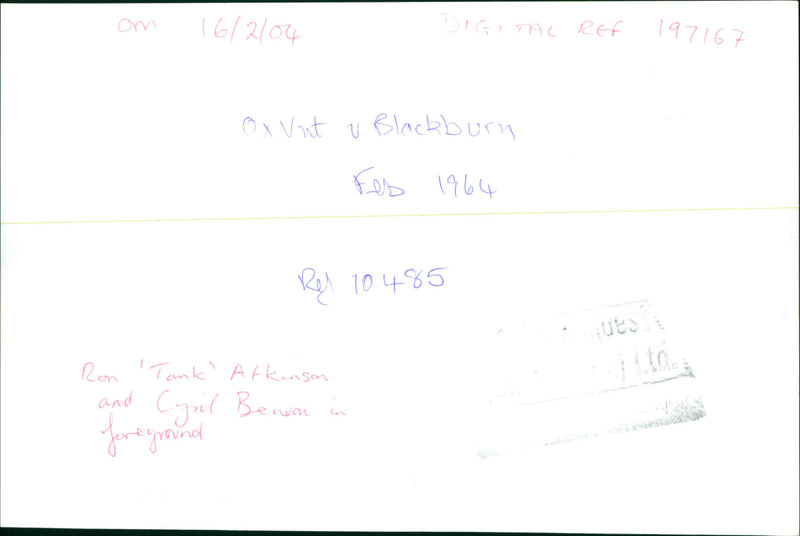 Om 16/2/04 DIGITAL REF 197167
Ox Vnt v Blackburn
Feb 1964
Ref 10485
Ron 'Tank' Atkinson
and Cyril Beavon in
foreground
Ltd.